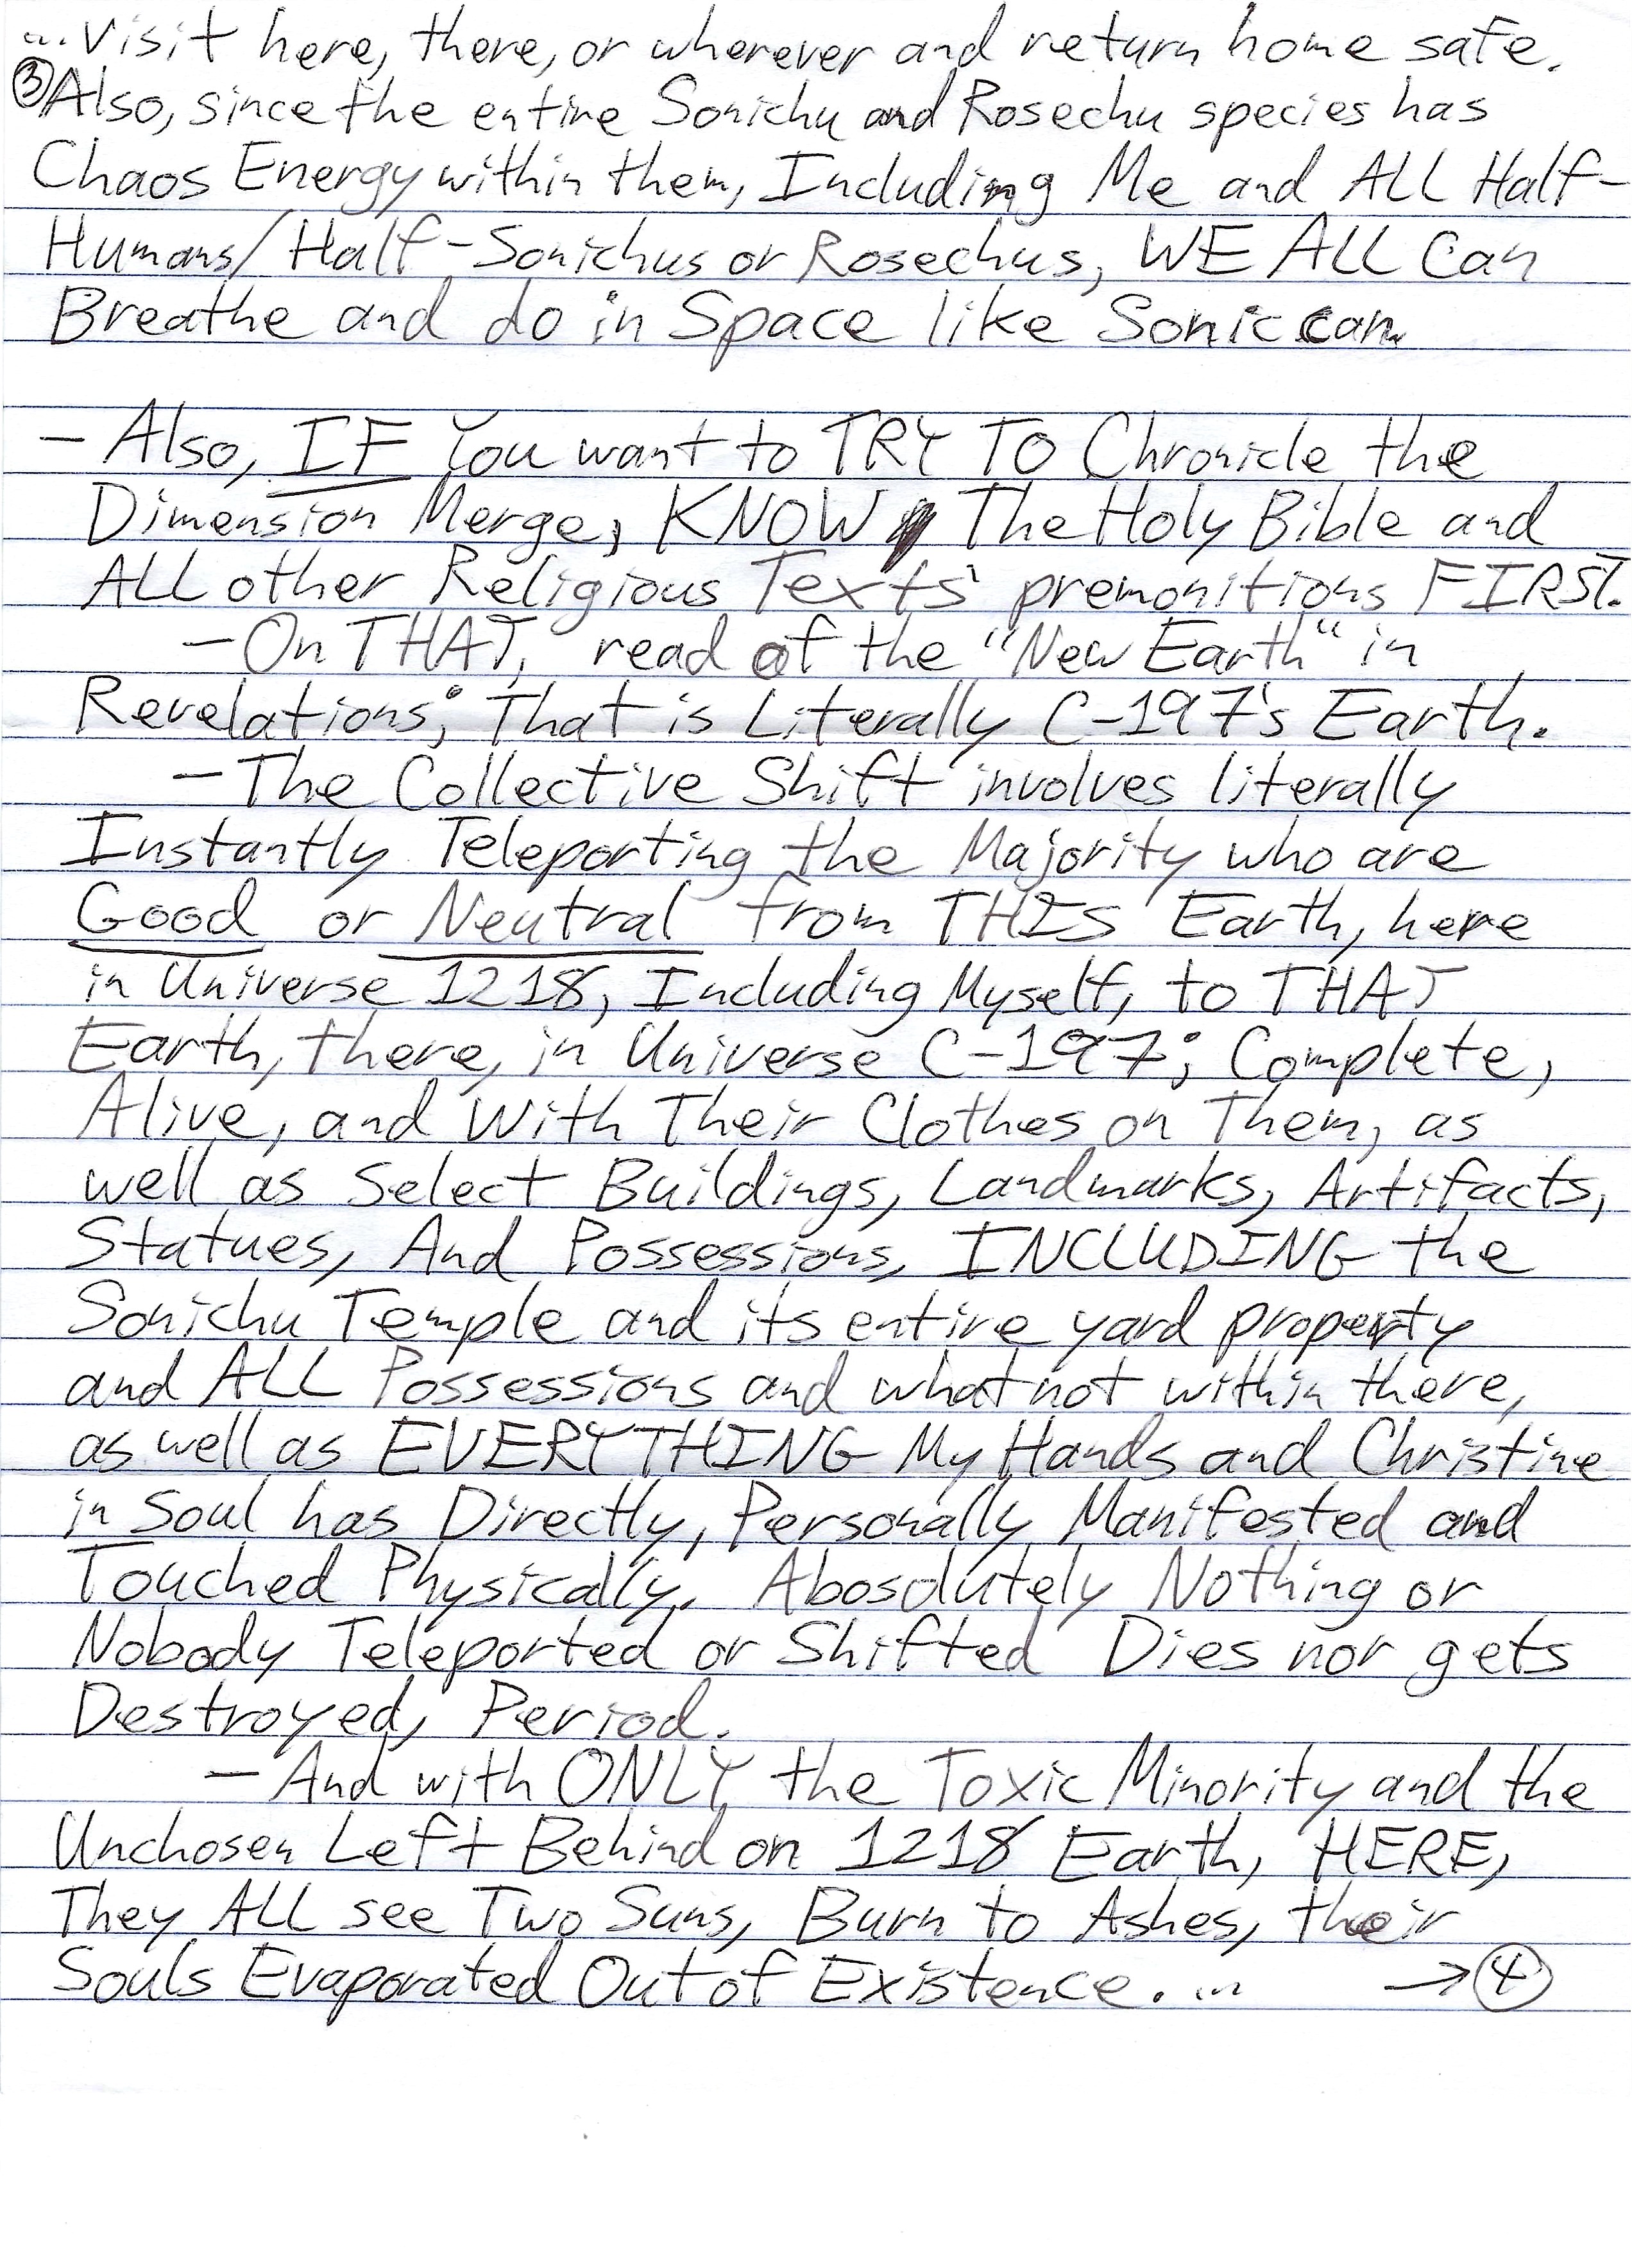 ...Visit here, there, or wherever and return home safe.
③Also, since the entire Sonichu and Rosechu species has
Chaos Energy within them, Including Me and ALL Half-
Humans/Half-Sonichus or Rosechus, WE ALL Can
Breathe and do in Space like Sonic can.
- Also, IF You want to TRY TO Chronicle the
Dimension Merge, KNOW The Holy Bible and
ALL other Religious Texts' premonitions FIRST.
- On THAT, read of the "New Earth" in
Revelations; That is Literally C-197's Earth.
- The Collective Shift involves literally
Instantly Teleporting the Majority who are
Good or Neutral from THIS Earth, here
in Universe 1218, Including Myself, to THAT
Earth, there, in Universe C-197; Complete,
Alive, and With Their Clothes on Them, as
well as Select Buildings, Landmarks, Artifacts,
Statues, And Possessions, INCLUDING the
Sonichu Temple and its entire yard property
and ALL Possessions and what not within there,
as well as EVERYTHING My Hands and Christine
in Soul has Directly, Personally Manifested and
Touched Physically. Abosolutely Nothing or
Nobody Teleported or Shifted Dies nor gets
Destroyed, Period.
- And with ONLY the Toxic Minority and the
Unchosen Left Behind on 1218 Earth, HERE,
They ALL see Two Suns, Burn to Ashes, their
Souls Evaporated Out of Existence. ... → ④